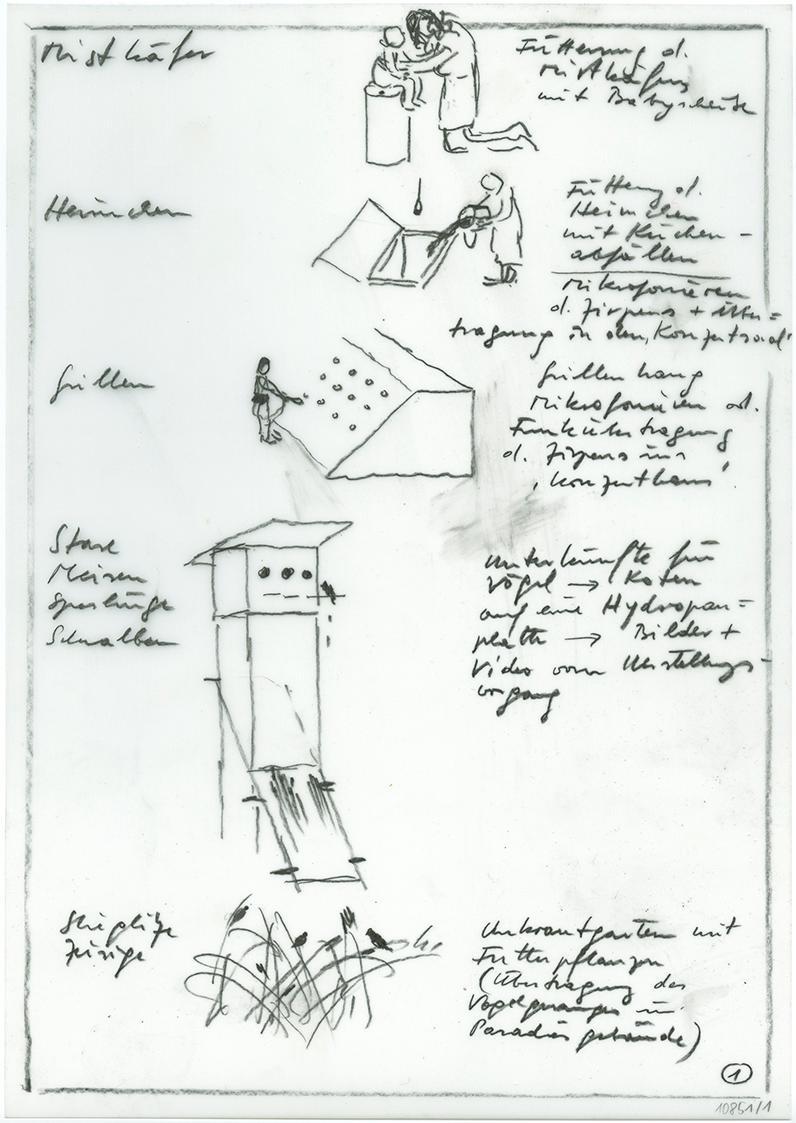 Mistkäfer
Fütterung d.
Mistkäfers
mit Babyscheiße
Heimchen
Fütterung d.
Heimchen
mit Küchen-
abfällen
Mikrofonieren
d. Zirpens + Über=
tragung in den 'Konzertsaal'
Grillen
Grillenhang
Mikrofonieren od.
Funkübertragung
d. Zirpens ins
'Konzerthaus'
Stare
Meisen
Sperlinge
Schwalben
Unterkünfte für
Vögel → Koten
auf eine Hydropon=
platte → Bilder +
Video vom
vorgang
Stieglitze
Zeisige
Unkrautgarten mit
Futterpflanzen
(Übertragung des
Vogelgesanges ins
Paradiesgebäude)
1
10851/1